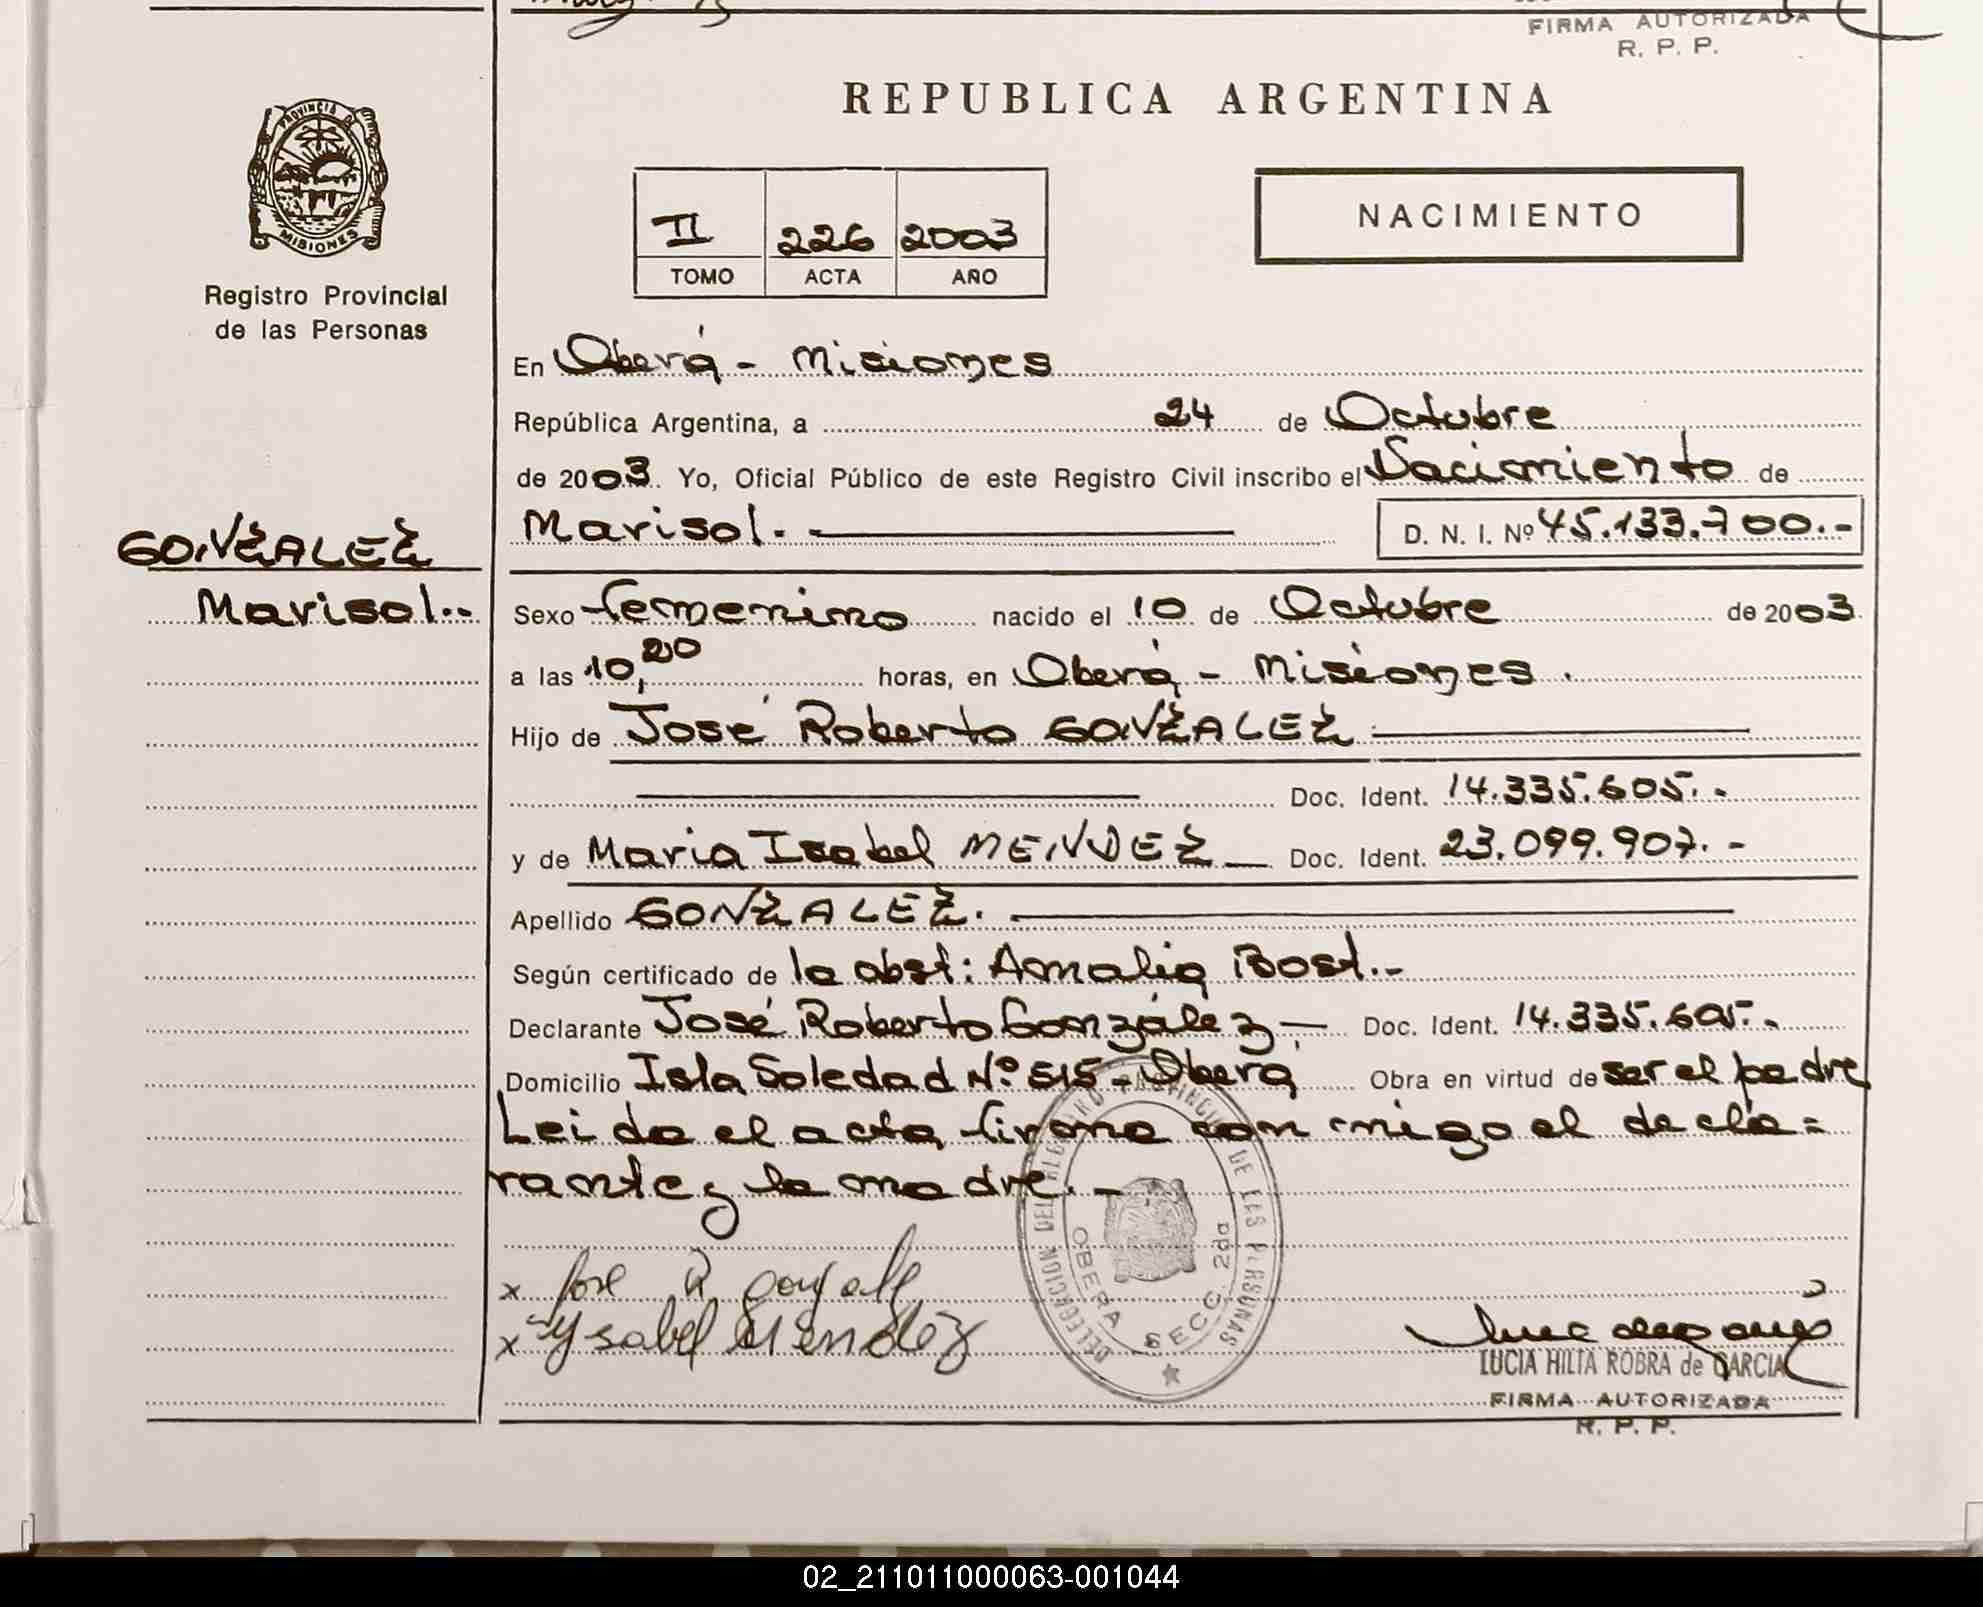 FIRMA AUTORIZADA
R. P. P.
REPUBLICA ARGENTINA
PROVINCIA DE
MISIONES
Registro Provincial
de las Personas
II 226 2003
TOMO ACTA AÑO
NACIMIENTO
En Oberá - Misiones
República Argentina, a 24 de Octubre
de 2003. Yo, Oficial Público de este Registro Civil inscribo el Nacimiento de
Marisol.- D. N. I. Nº 45.133.700.-
GONZALEZ
Marisol.-
Sexo femenino nacido el 10 de Octubre de 2003
a las 10,20 horas, en Oberá - Misiones.
Hijo de José Roberto GONZALEZ
Doc. Ident. 14.335.605.-
y de Maria Isabel MENDEZ Doc. Ident. 23.099.907.-
Apellido GONZALEZ.
Según certificado de la obst: Amalia Bost.-
Declarante José Roberto González - Doc. Ident. 14.335.605.-
Domicilio Isla Soledad Nº 515 - Oberá Obra en virtud de ser el padre
Leida el acta firma con migo el decla=
rante y la madre.-
DELEGACION DEL REGISTRO PROVINCIAL DE LAS PERSONAS
OBERA SECC. 2da
x Jose R Gonzalez
x Ysabel Mendez
LUCIA HILIA ROBRA de GARCIA
FIRMA AUTORIZADA
R. P. P.
02_211011000063-001044